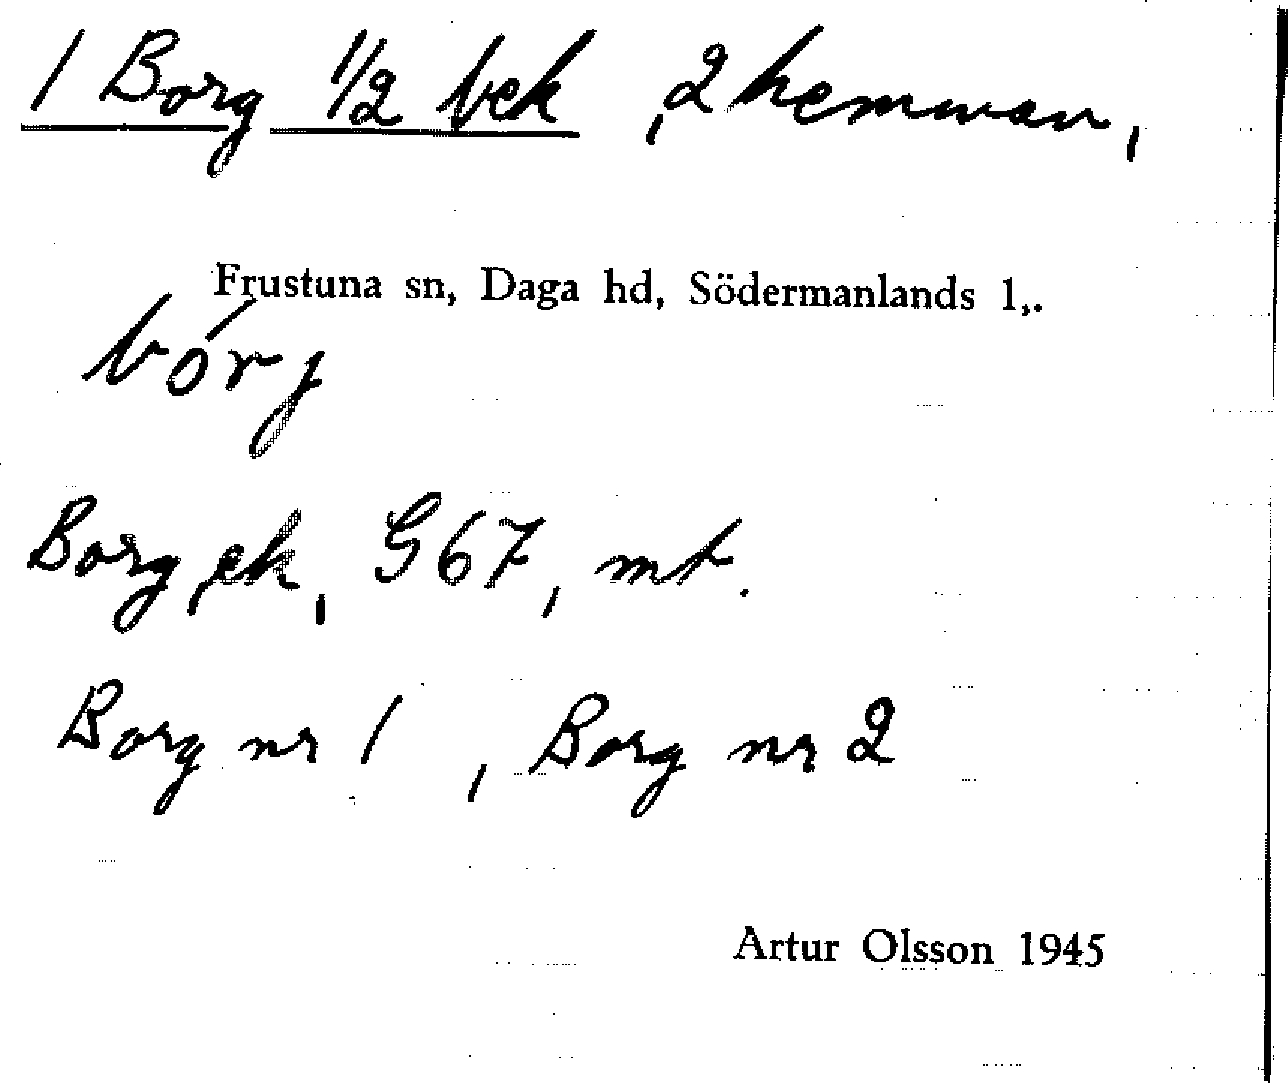 1 Borg 1/2 bek , 2 hemman ,
Frustuna sn, Daga hd, Södermanlands l,.
bórj
Borg, ek, G67, mt.
Borg nr 1 , Borg nr 2
Artur Olsson 1945